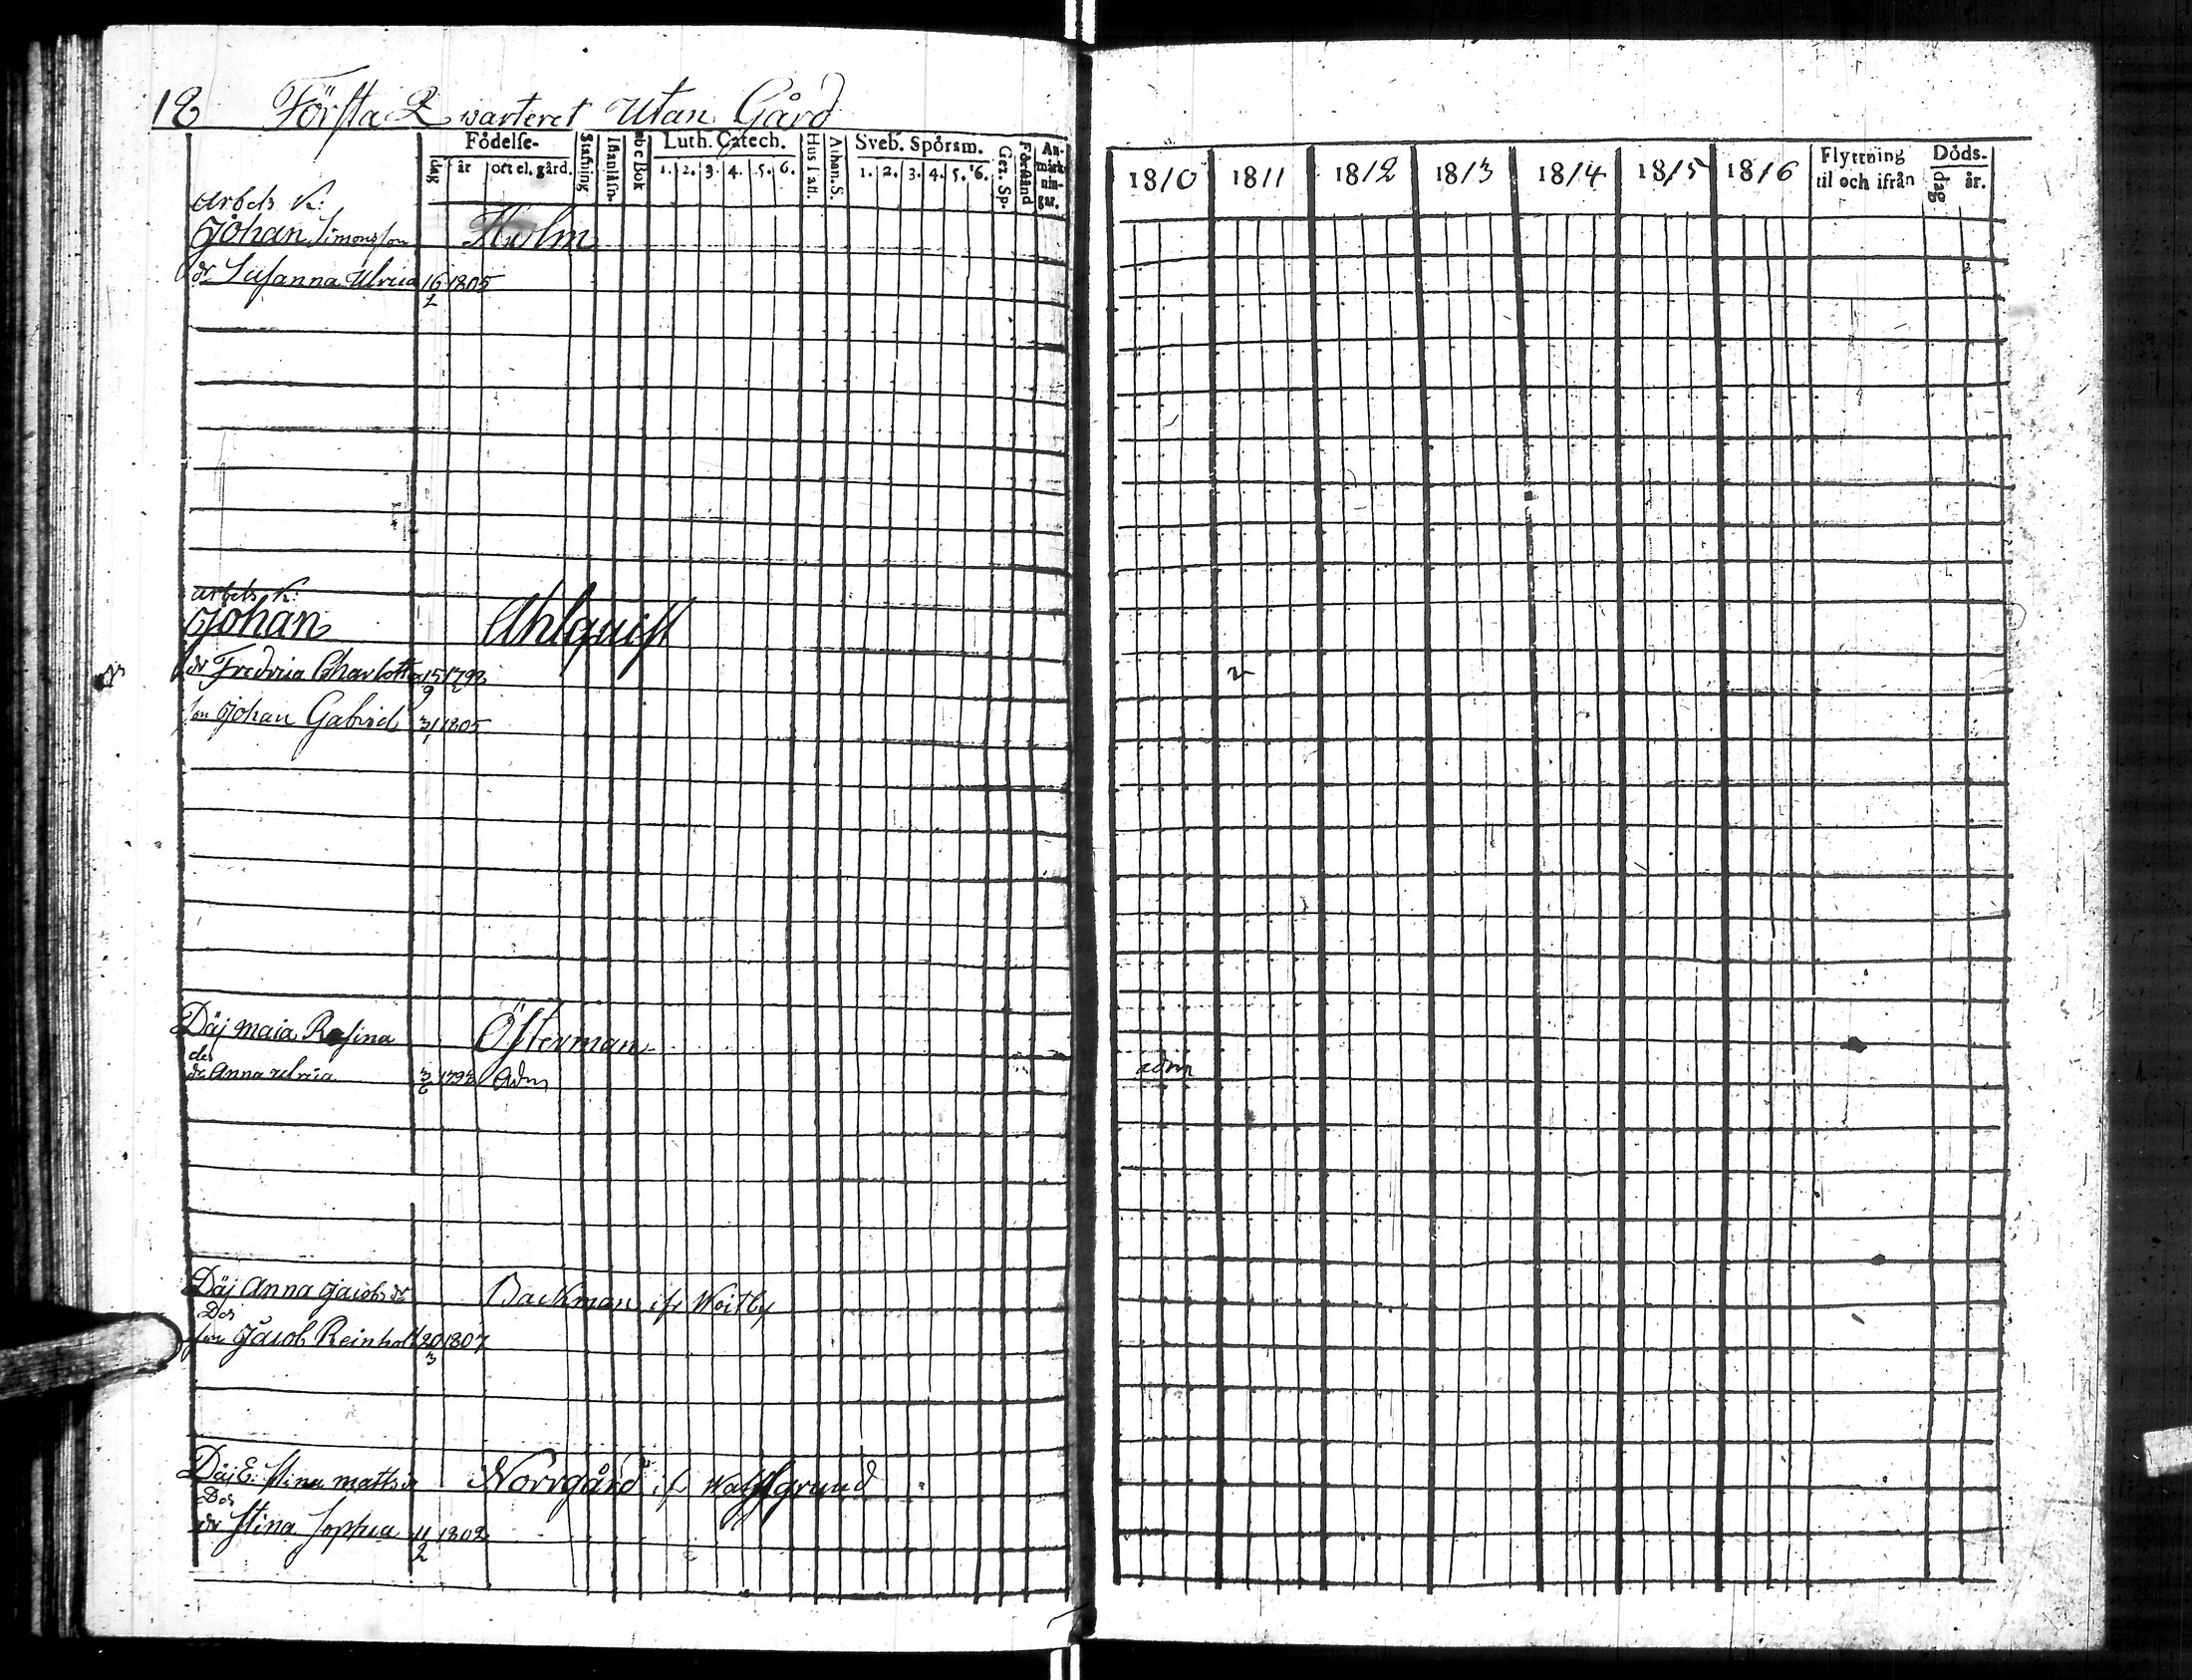 18 Första Qwarteret Utan Gård
Födelse- Stafning Luth. Catech. Hus Taff. Athan. S. Sveb. Spörsm. Gez. Sp. Förstånd An-märk-nin-gar.
dag år ort el. gård. abc Bok 1. 2. 3. 4. 5. 6. 1. 2. 3. 4. 5. 6.
1810 1811 1812 1813 1814 1815 1816 Flyttning til och ifrån Döds- dag år.
Arbets K:
Johan Simonsson Holm
dr Susanna Ulrica 16 1805
2
arbets K:
Johan Ahlquist
dr Fredrica Charlotta 15 1792
9
son Johan Gabriel 31 1805
1
Däj Maia Rosina Österman
des
dr Anna Ulrica 3/6 1793 Adm adm
Däj Anna Jacobs dr Backman ifr Woitby
Des
son Jacob Reinholt 20 1807
3
Däj E: Stina Matts dr Norrgård ifr Wassgrund
Des
dr Stina Sophia 11 1802
2